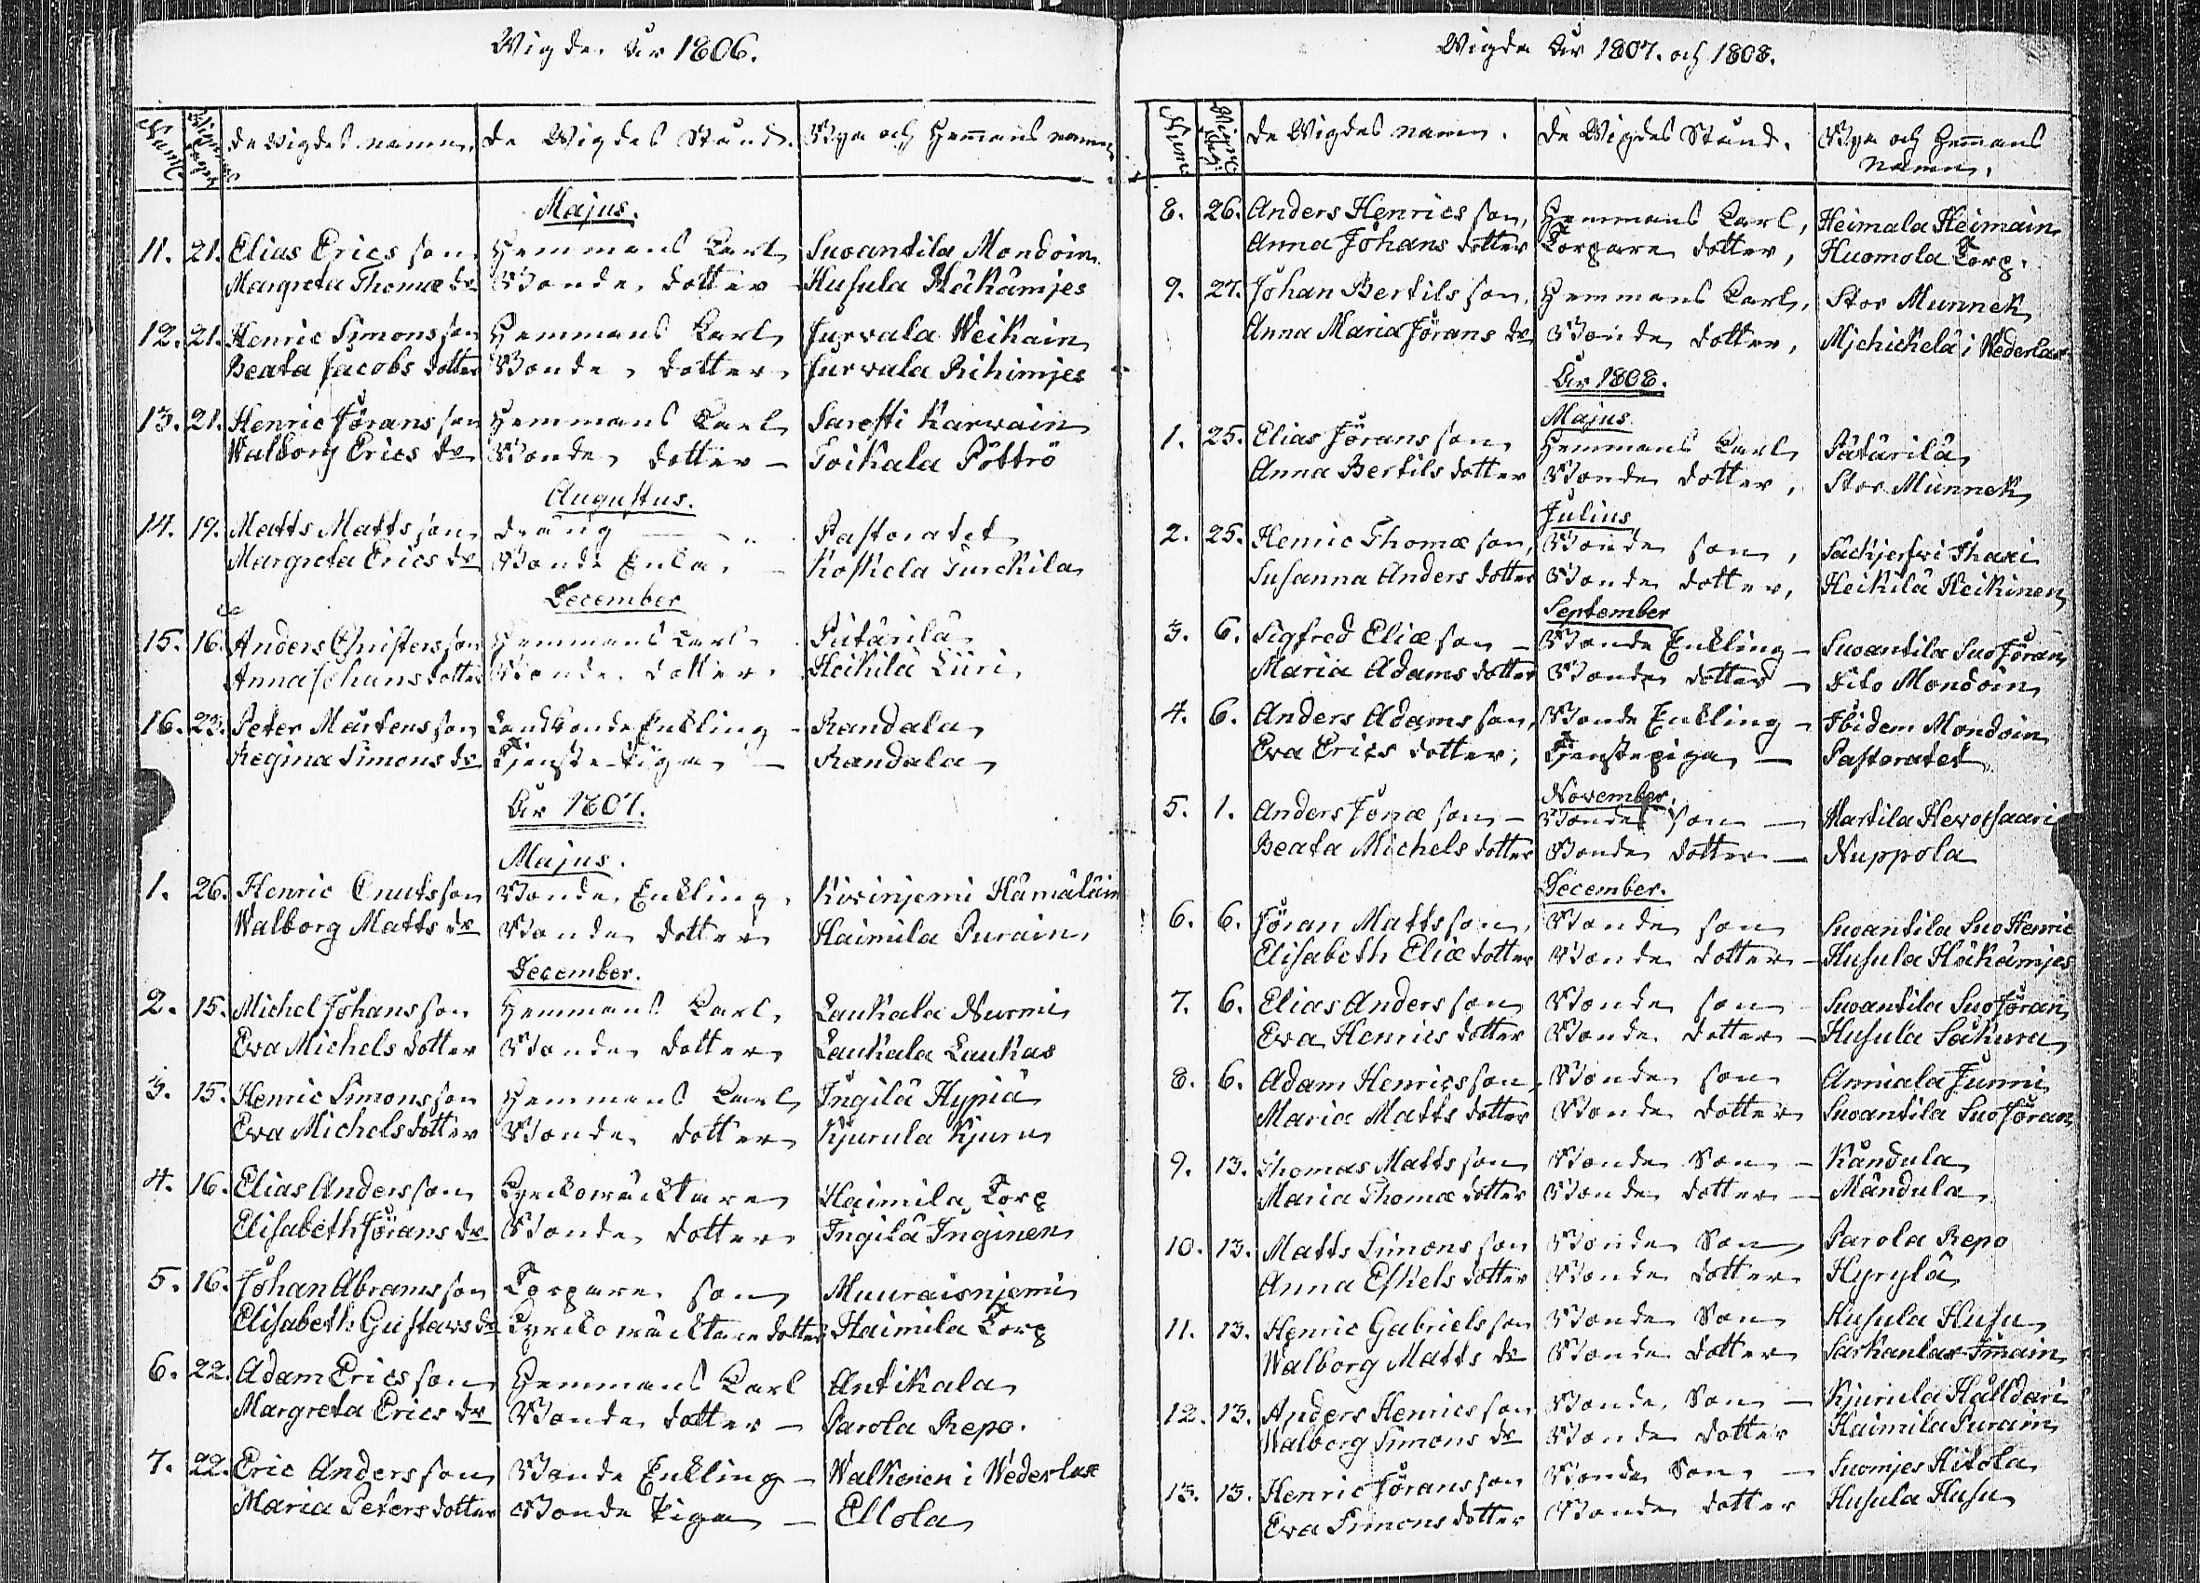 Wigde År 1806.
Num. Wignings dagar De Wigdes namn. De Wigdes Stånd. Bya och Hemans namn
Majus.
11. 21. Elias Erics son Hemmans Karl Suoantila Mondoin
Margreta Thomæ dr Bonde dotter - Husula Häkämjes
12. 21. Henric Simons son Hemmans Karl Jurvala Weikain
Beata Jacobs dotter Bonde dotter Jurvala Rihimjes
13. 21. Henric Jörans son Hemmans Karl Sarefti Karvain
Walborg Erics dr Bonde dotter - Toikala Pöttrö
Augustus.
14. 19. Matts Matts son dräng Pastoratet
Margreta Erics dr Bonde Enka - Koskela Turckila
December
15. 16. Anders Christers son Hemmans Karl Pätärilä
Anna Johans dotter Bonde dotter Heikilä Liiri
16. 23. Peter Mårtens son Landbonde Enkling - Randala
Regina Simons dr Tjenste Piga - Randala
År 1807.
Majus.
1. 26. Henric Cnuts son Bonde Enkling Kivinjemi Hämäläin
Walborg Matts dr Bonde dotter Haimila Purain
December.
2. 15. Michel Johans son Hemmans Karl Laukala Nurmi
Eva Michels dotter Bonde dotter Laukala Laukas
3. 15. Henric Simons son Hemmans Karl Ingilä Hypiä
Eva Michels dotter Bonde dotter Kjurula Kjuru
4. 16. Elias Anders son Kyrkowäktare Haimila Torp
Elisabeth Jörans dr Bonde dotter Ingilä Inginen
5. 16. Johan Abrams son Torpare son Muuraisnjemi
Elisabeth Gustavs dr Kyrkowäktare dotter Haimila Torp
6. 22. Adam Erics son Hemmans Karl Antikala
Margreta Erics dr Bonde dotter - Parola Repo.
7. 22. Eric Anders son Bonde Enkling - Walkenen i Wederlax
Maria Peters dotter Bonde Piga - Ellola
Wigda År 1807. och 1808.
Num. Wign. dag. De Wigdes namn. De Wigdes Stånd. Bya och Hemans
namn.
8. 26. Anders Henrics son, Hemmans Karl, Heimala Heimain
Anna Johans dotter Torpare dotter, Huomola Torp.
9. 27. Johan Bertils son, Hemmans Karl, Stor Munnek
Anna Maria Jörans dr Bonde dotter, Mjchickelä i Wederlax
År 1808.
Majus
1. 25. Elias Jörans son Hemmans Karl Pätärilä
Anna Bertils dotter Bonde dotter, Stor Munnek
Julius
2. 25. Henric Thomæ son, Bonde son, Säckjerfvi Ihaxi
Susanna Anders dotter Bonde dotter, Heikilä Heikinen
September
3. 6. Sigfred Eliæ son - Bonde Enkling - Suoantila Suo Jöran
Maria Adams dotter Bonde dotter - Dito Mondoin
4. 6. Anders Adams son, Bonde Enkling - Ibidem Mondoin
Eva Erics dotter, Tjenstepiga - Pastoratet
November.
5. 1. Anders Jonæ son - Bonde son - Martila Hevosaari
Beata Michels dotter Bonde dotter - Nuppola
December.
6. 6. Jöran Matts son, Bonde son Suoantila Suo Henric
Elisabeth Eliæ dotter Bonde dotter - Husula Häkämjes
7. 6. Elias Anders son Bonde son Suoantila Suo Jöran
Eva Henrics dotter Bonde dotter - Husula Säkura
8. 6. Adam Henrics son Bonde son Anniala Junni
Maria Matts dotter Bonde dotter Suoantila Suo Jöran
9. 13. Thomas Matts son Bonde Son - Kändula
Maria Thomæ dotter Bonde dotter - Mändula
10. 13. Matts Simons son Bonde Son Parola Repo
Anna Eskels dotter Bonde dotter Hyrylä
11. 13. Henric Gabriels son Bonde Son Husula Husu
Walborg Matts dr Bonde dotter Sarkanlax Imain
12. 13. Anders Henrics son Bonde Son - Kjurula Hälldari
Walborg Simons dr Bonde dotter Haimila Purain
13. 13. Henric Jörans son Bonde Son - Suomjes Hitola
Eva Simons dotter Bonde dotter Husula Husu